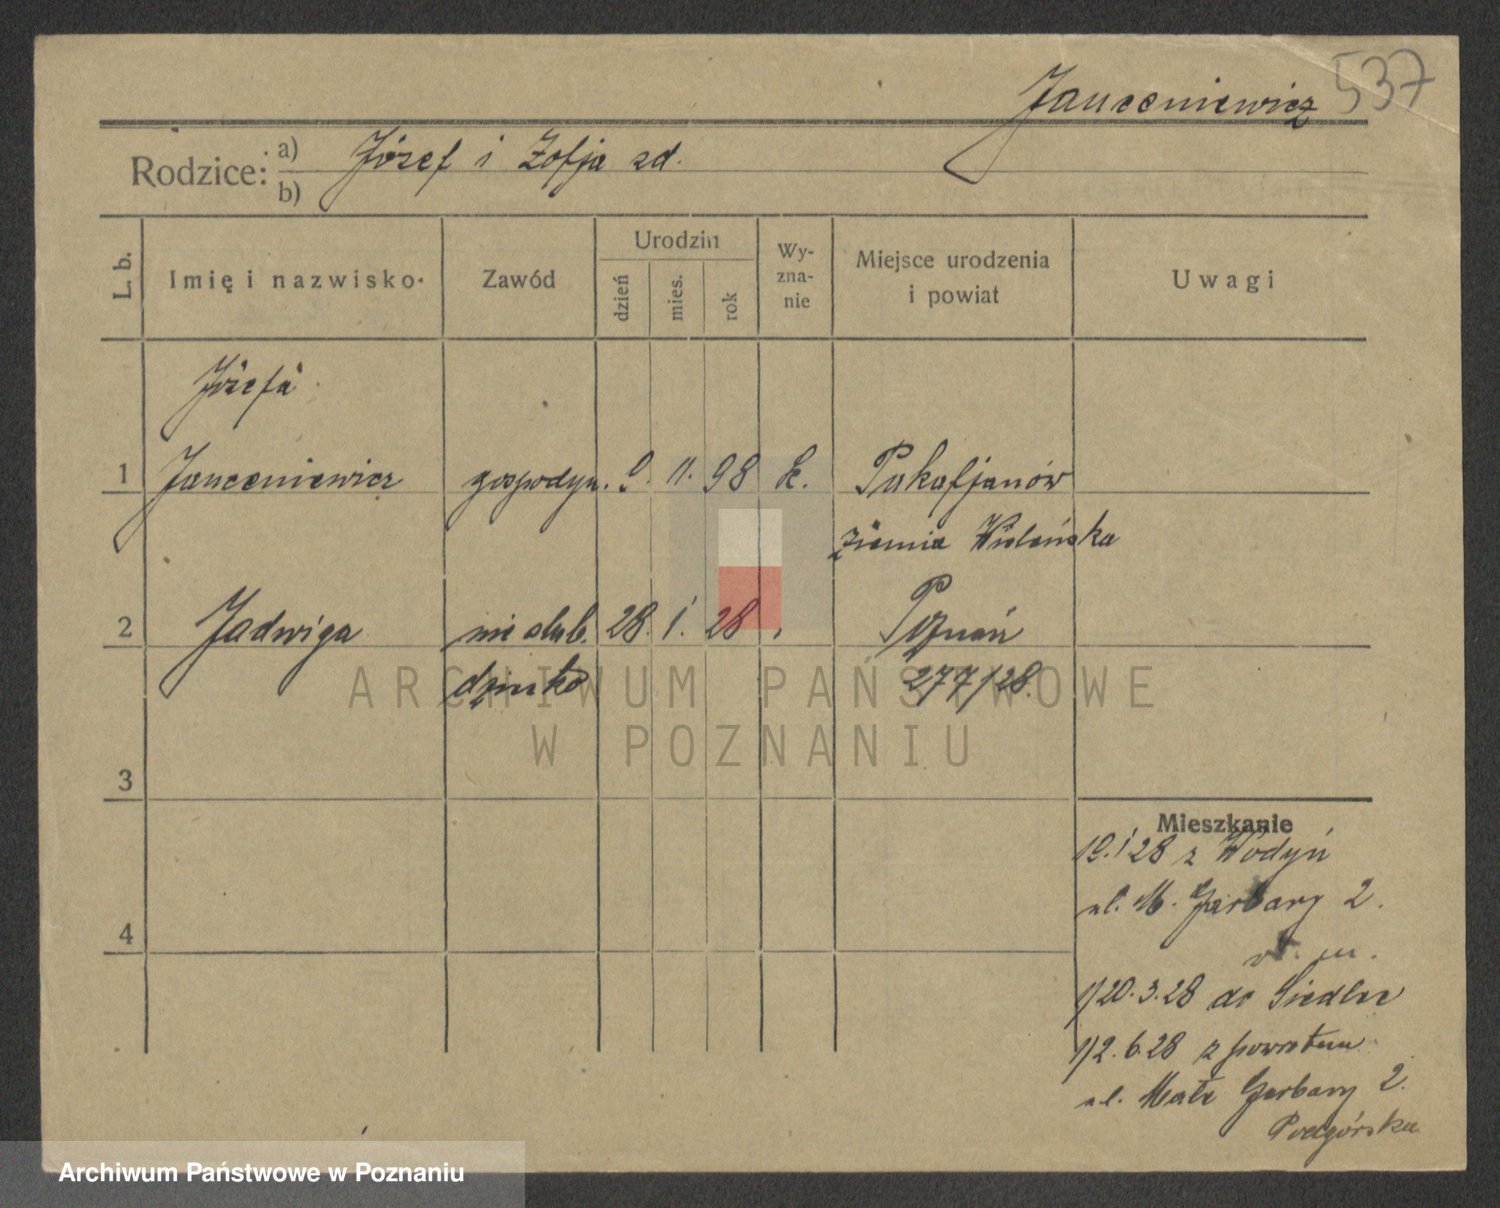 537
Janceniewicz
Rodzice: a) Józef i Zofja zd.
b)
L. b.
Imię i nazwisko
Zawód
Urodzin
dzień
mies.
rok
Wy-
zna-
nie
Miejsce urodzenia
i powiat
Uwagi
Józefa
1 Janceniewicz gospodyn. 9. 11. 98 k.
ziemia Wileńska
2 Jadwiga nieslub. 28. 1. 28 Poznań
dziecko 277/28.
3
4
Mieszkanie
19.1 28 z Wodyń
ul. M. Garbary 2.
1/20.3.28 do Siedlec
1/2.6.28 z powrotem
ul. Małe Garbary 2.
Podgórska
ARCHIWUM PAŃSTWOWE
W POZNANIU
Archiwum Państwowe w Poznaniu